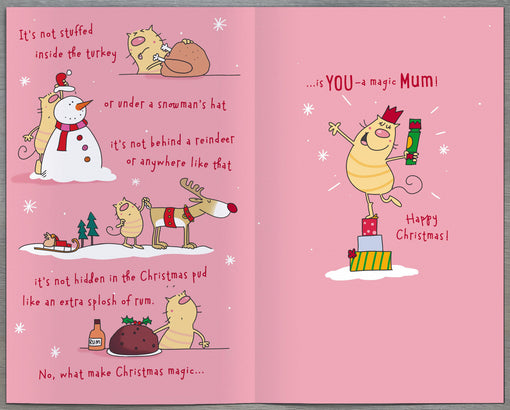 It's not stuffed
inside the turkey
or under a snowman's hat
it's not behind a reindeer
or anywhere like that
it's not hidden in the Christmas pud
like an extra splosh of rum.
RUM
No, what make Christmas magic...
...is YOU - a magic Mum!
Happy
Christmas!